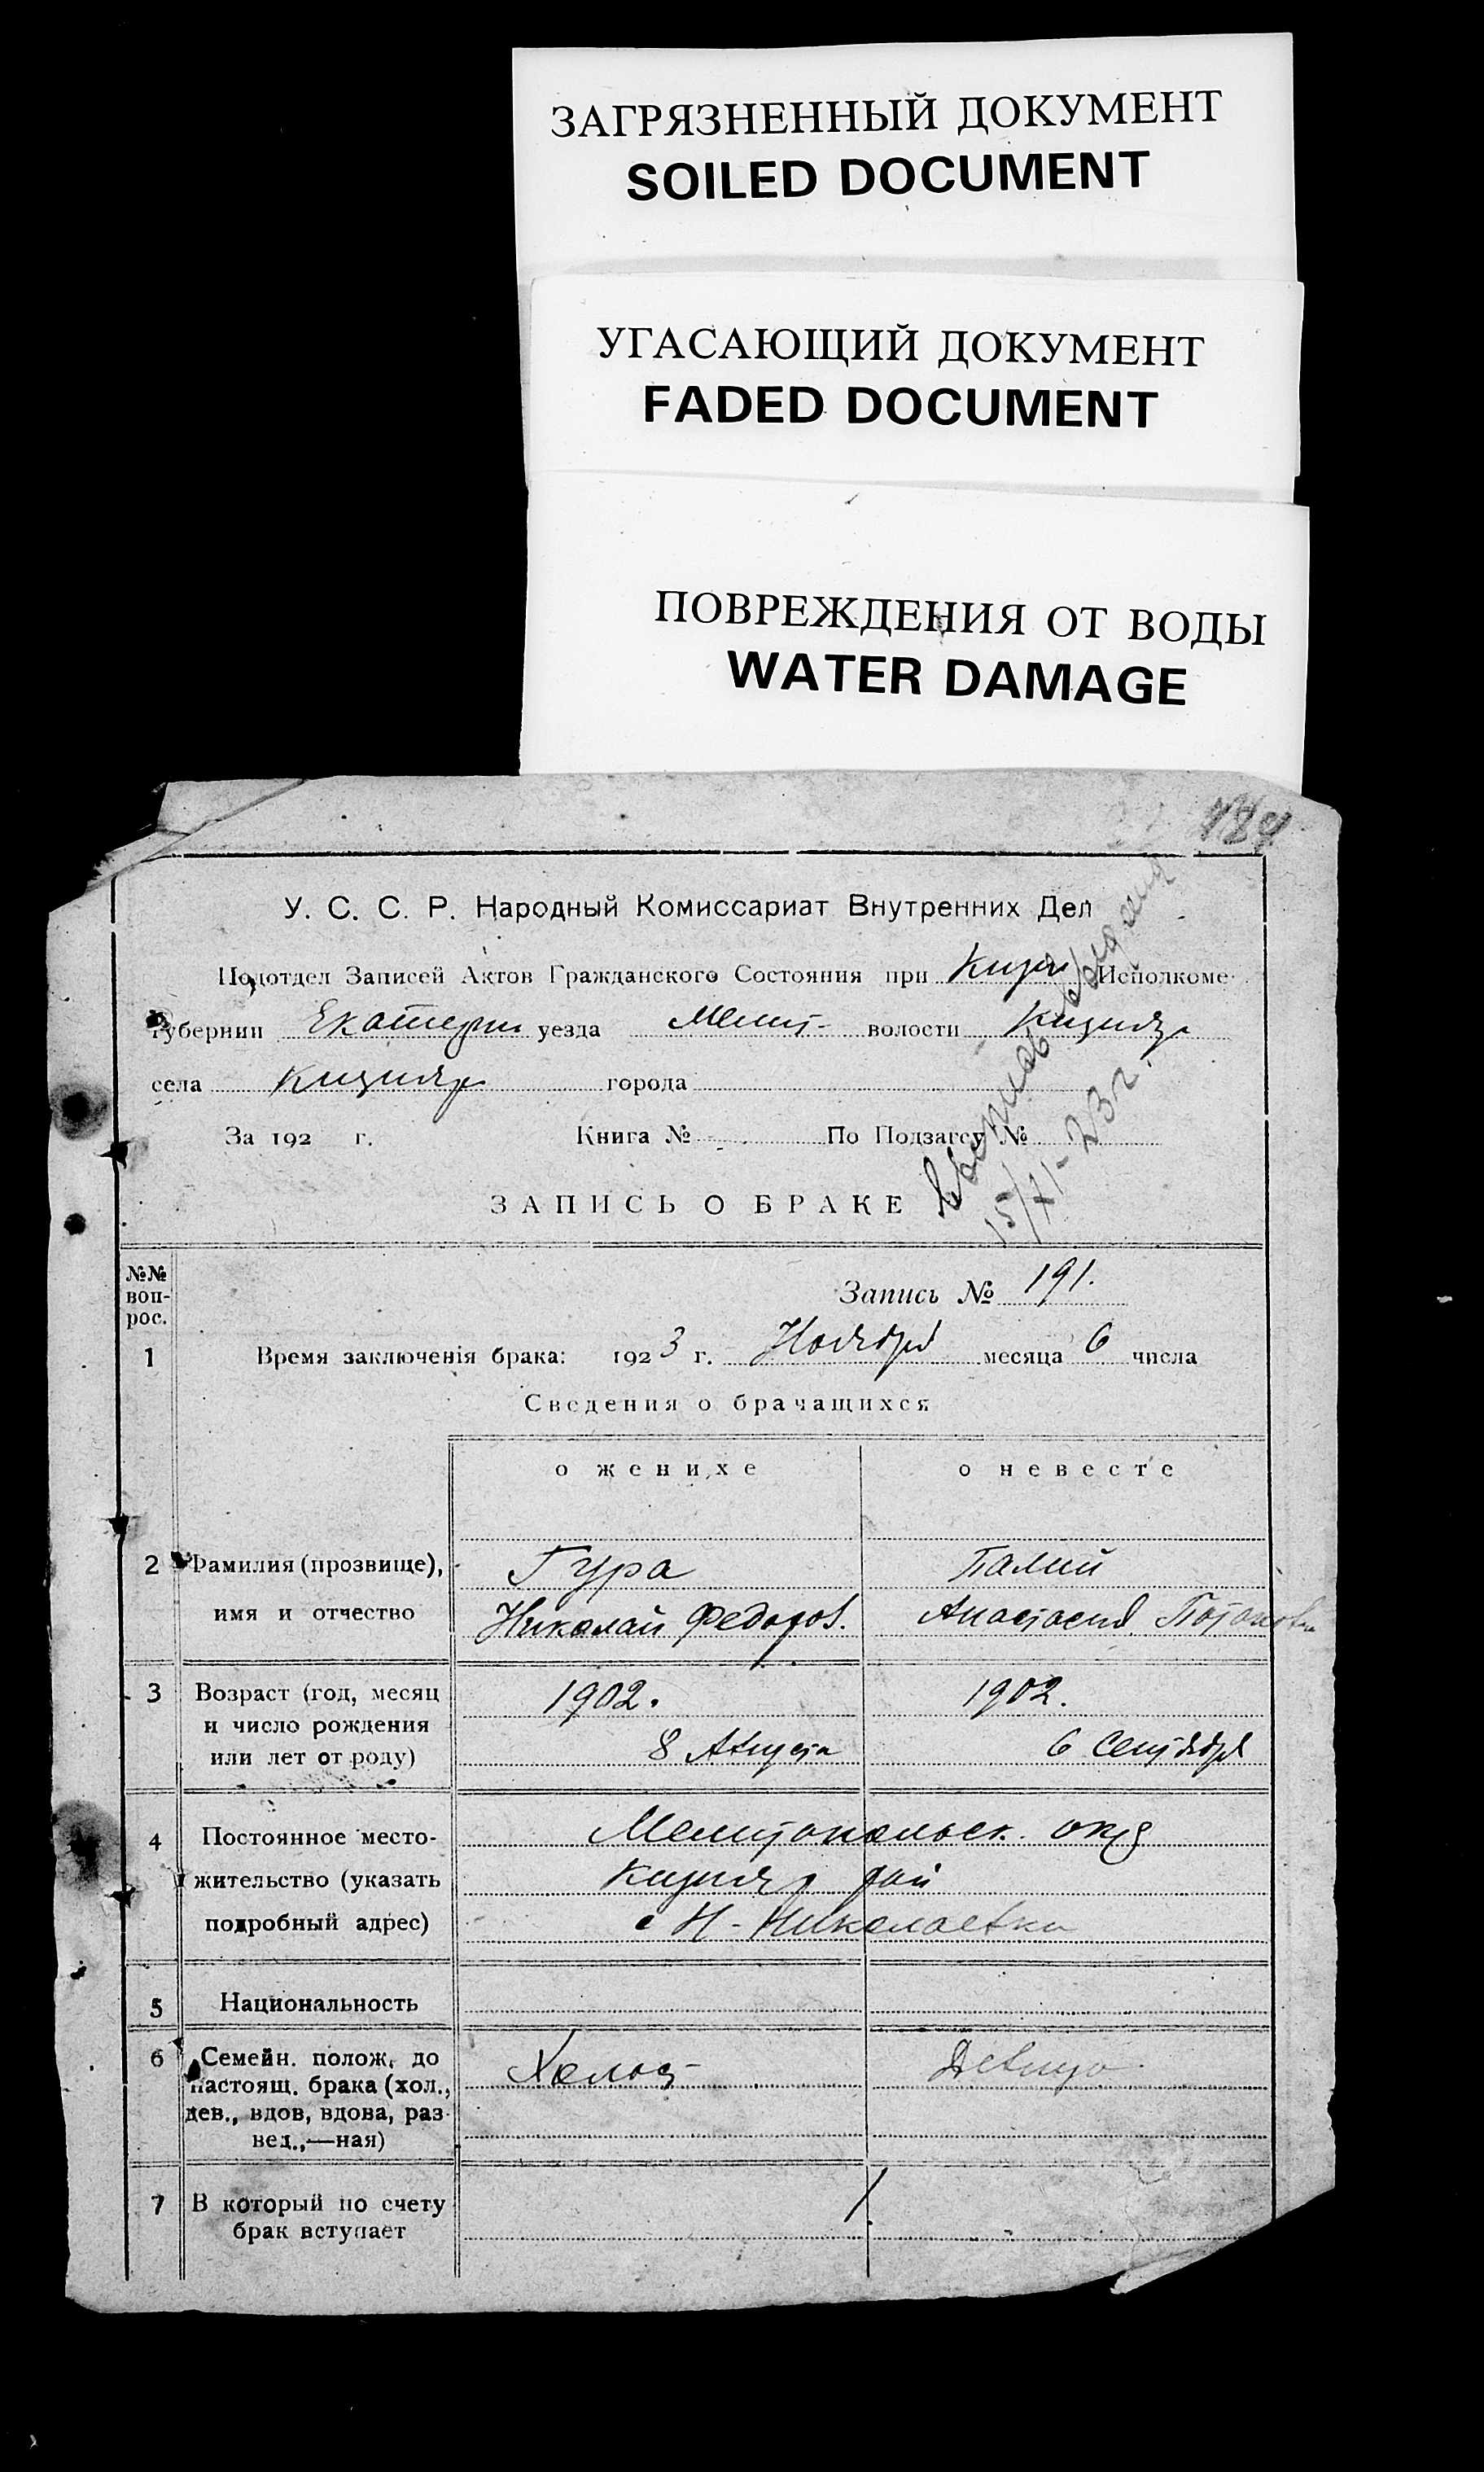 ЗАГРЯЗНЕННЫЙ ДОКУМЕНТ
SOILED DOCUMENT
УГАСАЮЩИЙ ДОКУМЕНТ
FADED DOCUMENT
ПОВРЕЖДЕНИЯ ОТ ВОДЫ
WATER DAMAGE
У. С. С. Р. Народный Комиссариат Внутренних Дел
Подотдел Записей Актов Гражданского Состояния при Исполкоме
Губернии Екатерин уезда Мелит- волости Кизияр
села Кизияр города
За 192 г. Книга № По Подзагсу №
Выпись выдана
15/XI-23 г.
ЗАПИСЬ О БРАКЕ
№№ вопрос.
Запись № 191.
1 Время заключенія брака: 1923 г. Ноября месяца 6 числа
Сведения о брачащихся
о женихе о невесте
2 Фамилия (прозвище), Гура Палий
имя и отчество Николай Федоров. Анастасия Потаповн
3 Возраст (год, месяц 1902. 1902.
и число рождения
или лет от роду) 8 Августа 6 Сентября
4 Постоянное место- Мелитопольск. окр
жительство (указать Кизияр рай
подробный адрес) с Н-Николаевка
5 Национальность
6 Семейн. полож. до Холост Девица
настоящ. брака (хол.,
дев., вдов, вдова, раз-
вед.,—ная)
7 В который по счету 1
брак вступает